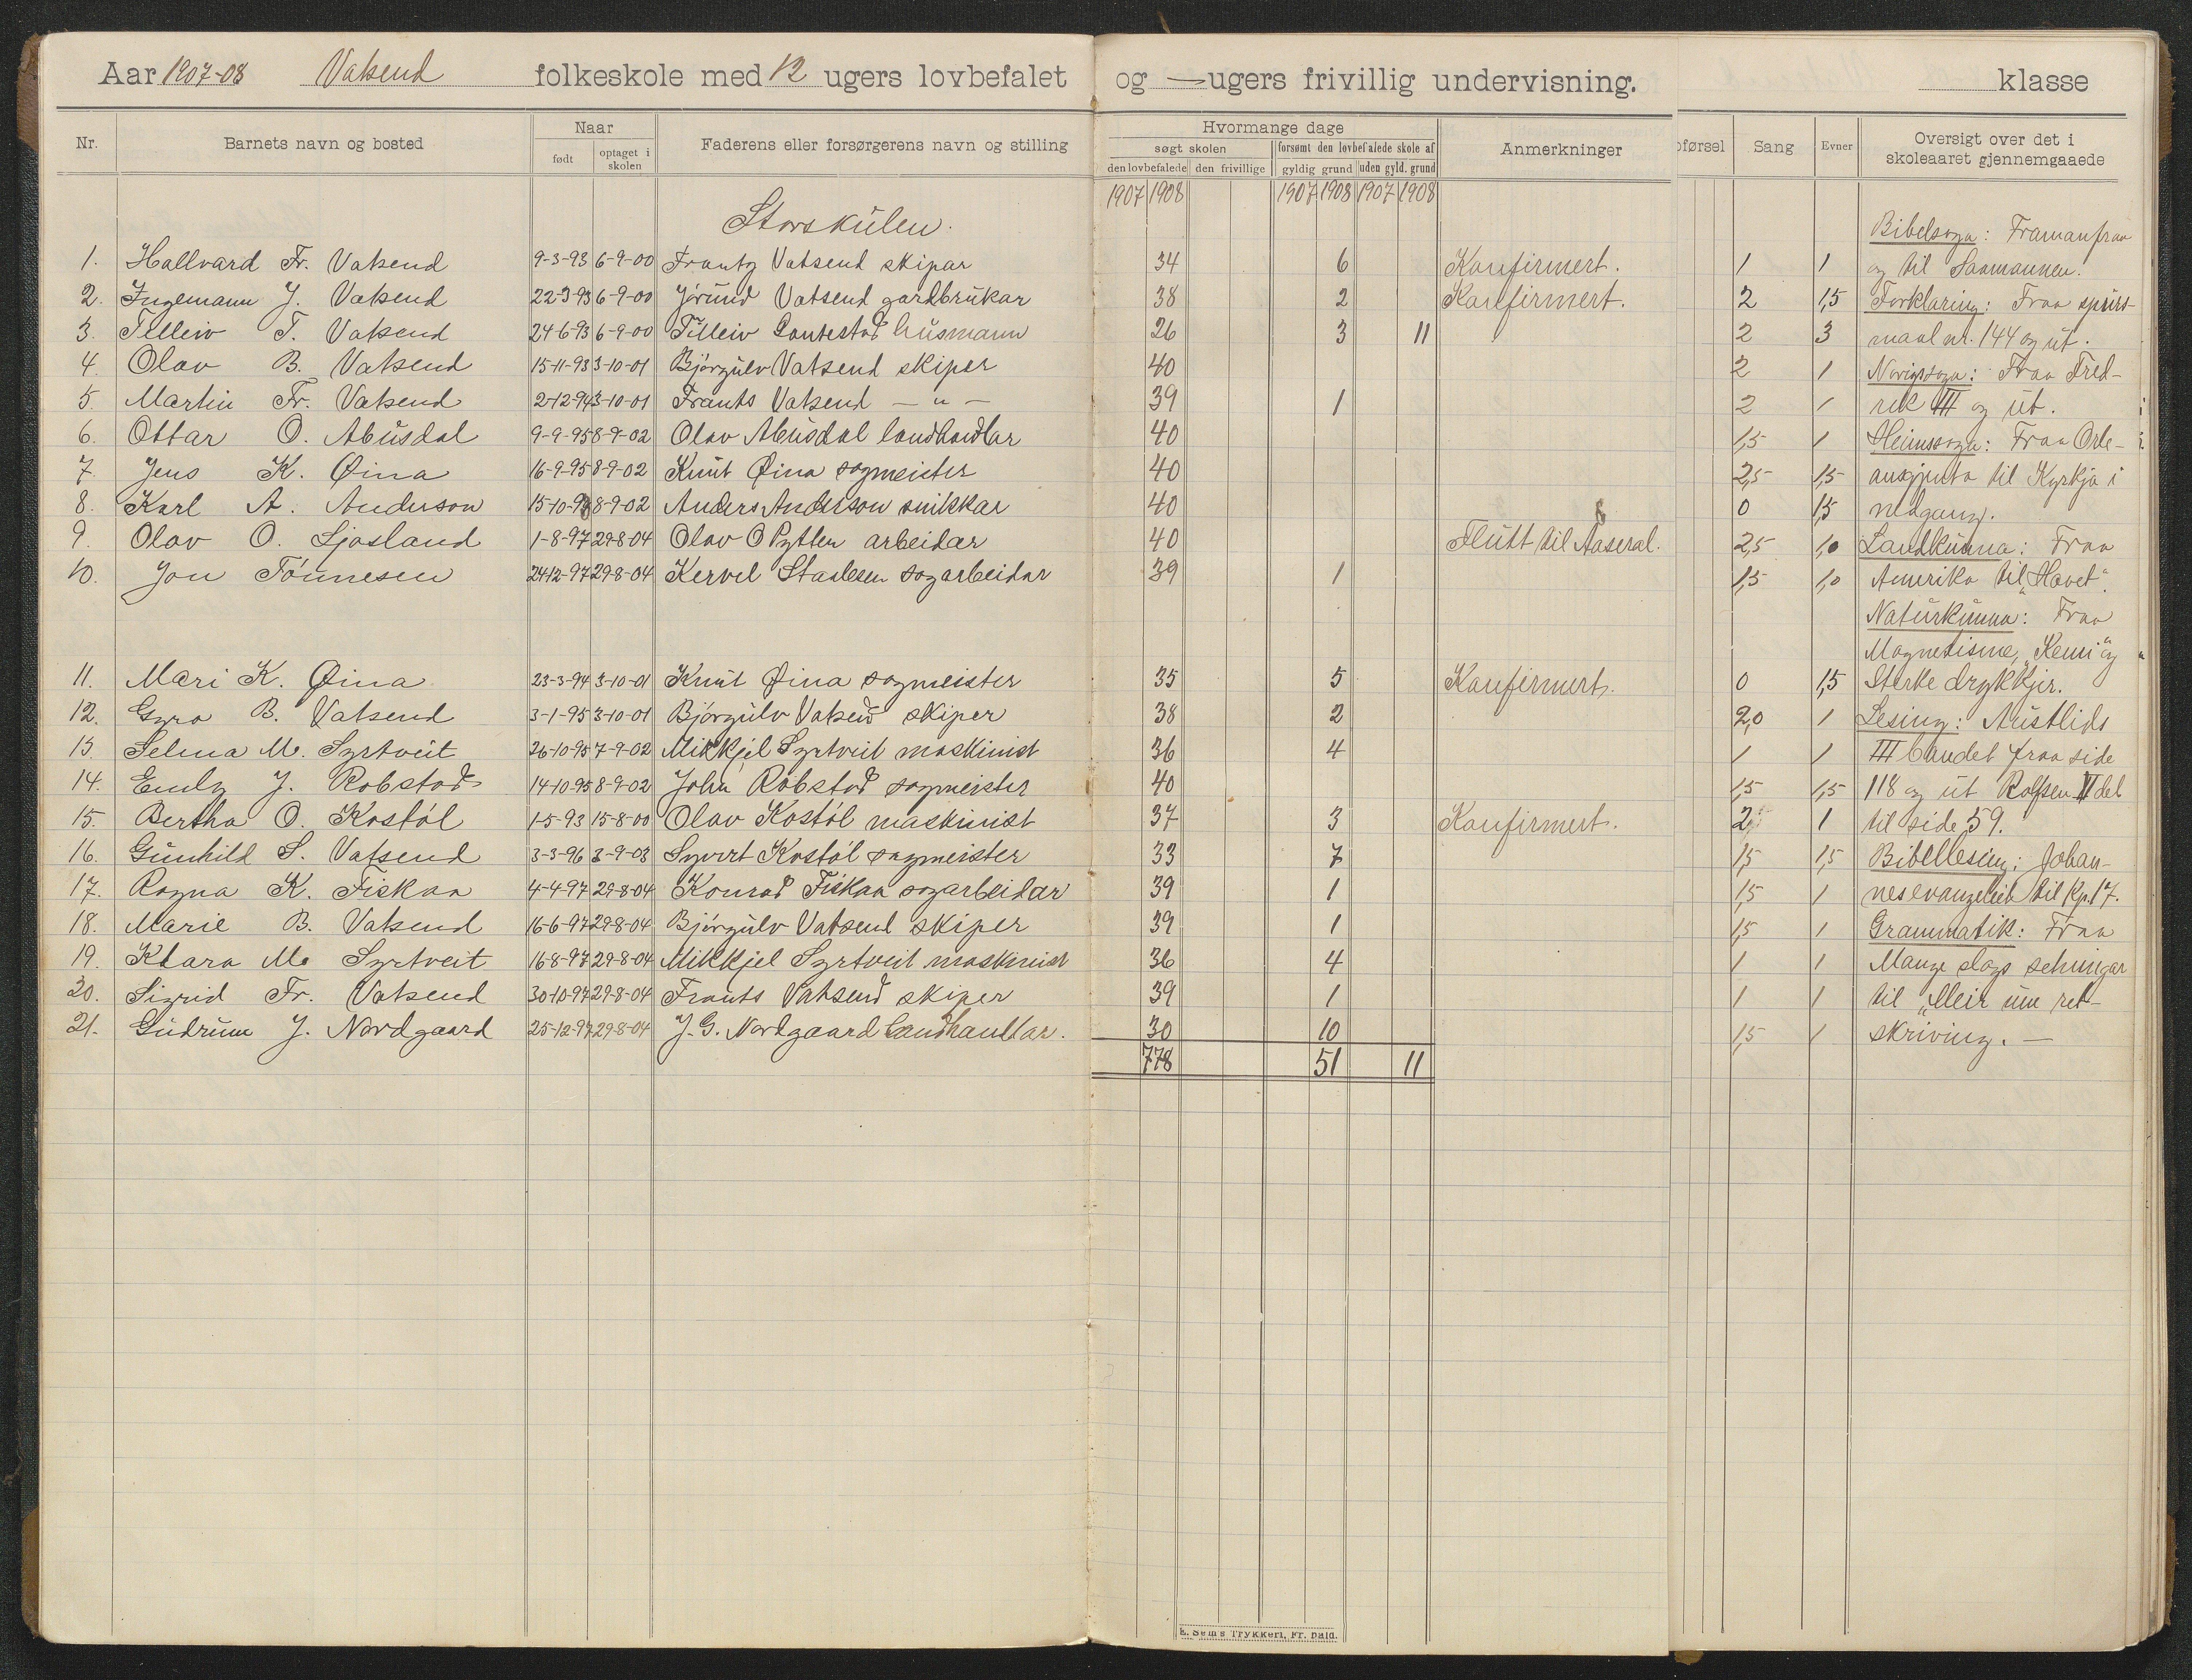 Aar 1907-08 Vatsend folkeskole med 12 ugers lovbefalet og — ugers frivillig undervisning. klasse
Nr. Barnets navn og bosted Naar født optaget i skolen Faderens eller forsørgerens navn og stilling
Hvormange dage søgt skolen den lovbefalede den frivillige forsømt den lovbefalede skole af gyldig grund uden gyld. grund Anmerkninger
oførsel Sang Evner Oversigt over det i skoleaaret gjennemgaaede
1907 1908 1907 1908 1907 1908
Storskúlen.
1. Hallvard Fr. Vatsend 9-3-93 6-9-00 Frantz Vatsend skipar 34 6 Konfirmert. 1 1
2. Ingemann J. Vatsend 22-3-93 6-9-00 Jórund Vatsend gardbrúkar 38 2 Konfirmert. 2 1,5
3. Tilleiv T. Vatsend 24-6-93 6-9-00 Tilleiv Gautestad húsmann 26 3 11 2 3
4. Olav B. Vatsend 15-11-93 3-10-01 Bjórgulv Vatsend skiper 40 2 1
5. Martin Fr. Vatsend 2-12-94 3-10-01 Frants Vatsend — " — 39 1 2 1
6. Ottar O. Abúsdal 9-9-95 8-9-02 Olav Abúsdal landhandlar 40 1,5 1
7. Jens K. Øina 16-9-95 8-9-02 Knút Øina sagmeister 40 2,5 1,5
8. Karl A. Anderson 8-9-02 Anders Anderson snikkar 40 0 1,5
9. Olav O. Ljosland 1-8-97 29-8-04 Olav O Pytten arbeidar 40 Flútt til Aaseral. 2,5 1,0
10. Jon Tónnesen 24-12-97 29-8-04 Kervel Staalesen sagarbeidar 39 1 1,5 1,0
11. Mari K. Øina 23-3-94 3-10-01 Knút Øina sagmeister 35 5 Konfirmert. 0 1,5
12. Gyro B. Vatsend 3-1-95 3-10-01 Bjórgulv Vatsend skiper 38 2 2,0 1
13. Selma M. Syrtveit 26-10-95 7-9-02 Mikkjel Syrtveit maskinist 36 4 1 1
14. Emly J. Robstad 14-10-95 8-9-02 John Robstad sagmeister 40 1,5 1,5
15. Bertha O. Kostól 1-5-93 15-8-00 Olav Kostól maskinist 37 3 Konfirmert. 2 1
16. Gúnhild S. Vatsend 3-3-96 3-9-03 Syvert Kostól sagmeister 33 7 1,5 1,5
17. Ragna K. Fiskaa 4-4-97 29-8-04 Konrad Fiskaa sagarbeidar 39 1 1,5 1
18. Marie B. Vatsend 16-6-97 29-8-04 Bjórgulv Vatsend skiper 39 1 1,5 1
19. Klara M. Syrtveit 16-8-97 29-8-04 Mikkjel Syrtveit maskinist 36 4 1 1
20. Sigrid Fr. Vatsend 30-10-97 29-8-04 Frants Vatsend skiper 39 1 1 1
21. Gúdrún J. Nordgaard 25-12-97 29-8-04 J. G. Nordgaard landhandlar. 30 10 1,5 1
778 51 11
Bibelsoga: Framanfraa
og til Saamannen.
Forklaring: Fraa spúrs-
maal nr. 144 og út.
Norigssoga: Fraa Fred-
rik III og út.
Heimssoga: Fraa Orle-
ansgjenta til Kyrkja i
nedgang.
Landkunna: Fraa
Amerika til "Havet".
Natúrkúnna: Fraa
Magnetisme, "Kemi" og
Sterke drykkjer.
Lesing: Austlids
III bandet fraa side
118 og út Rolfsen del
til side 59.
Bibellesing: Johan-
nes evangelieit til Kp. 17.
Grammatik: Fraa
Mange slags setningar
til "Meir um ret-
skriving. —
E. Sem's Trykkeri, Fr. hald.